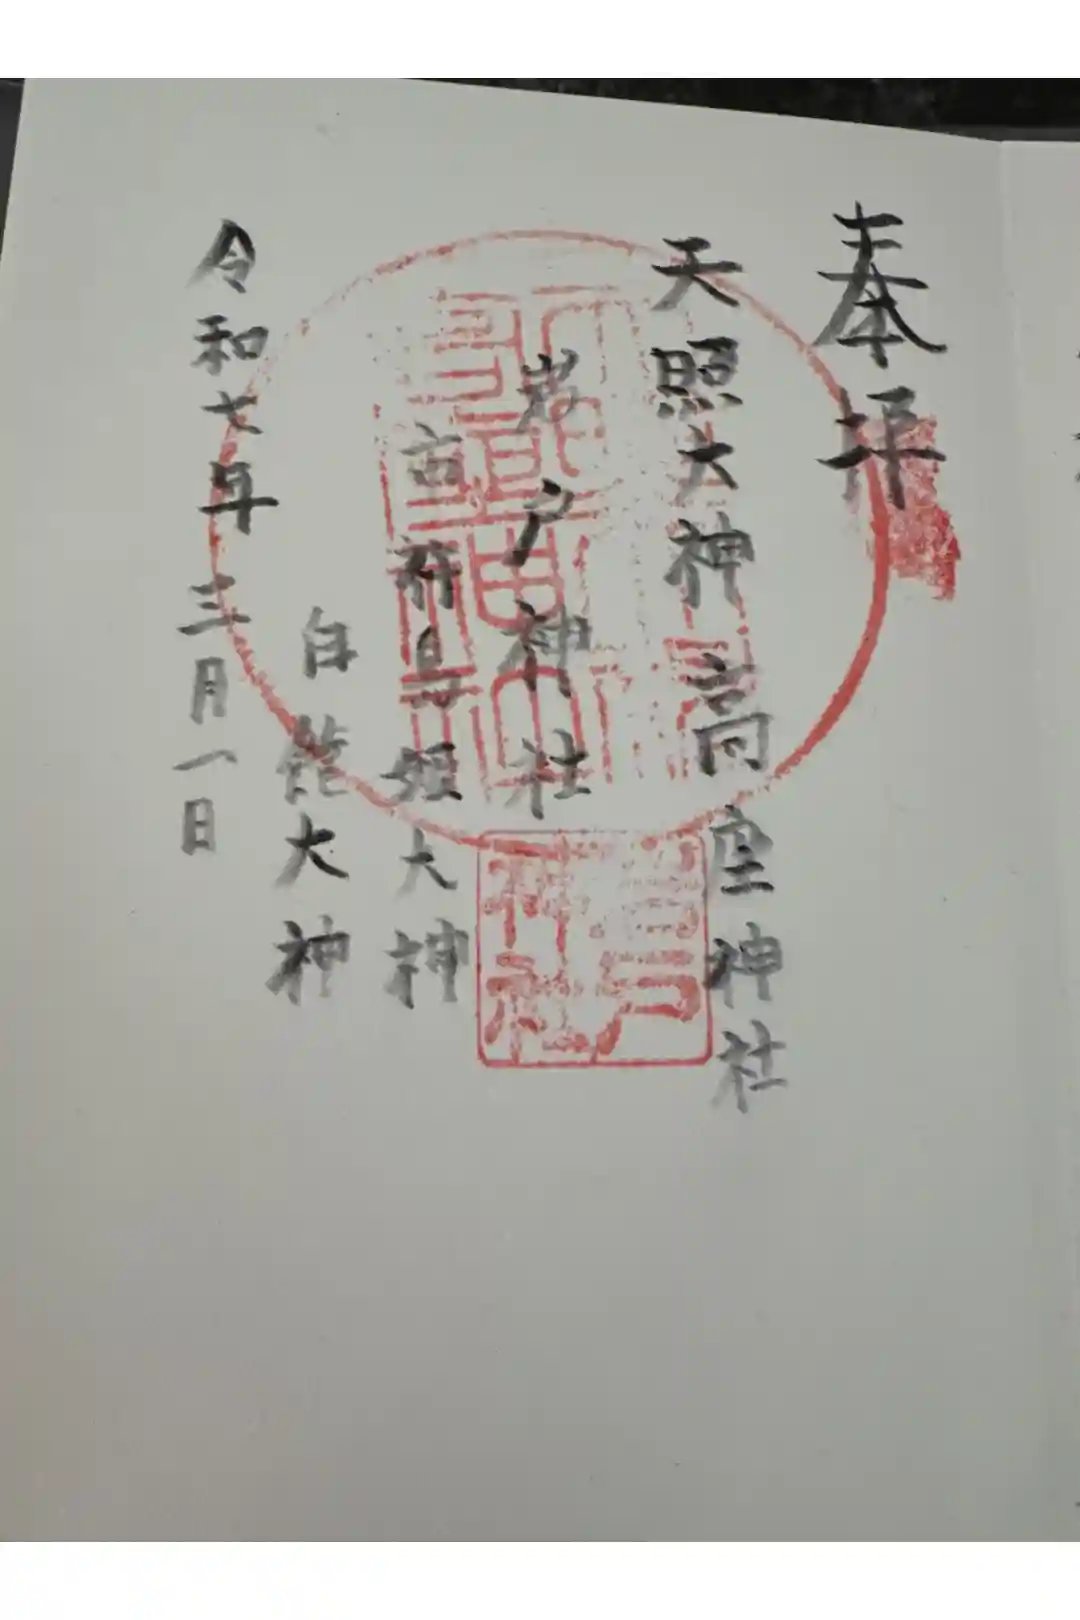 奉拝
天照大神高座神社
岩戸神社
市杵島姫大神
白龍大神
令和七年三月一日